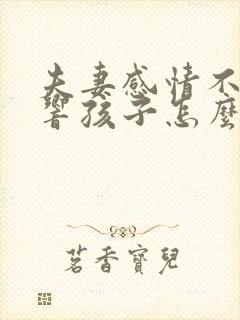 夫妻感情不
響孩子怎麼
茗香寶兒